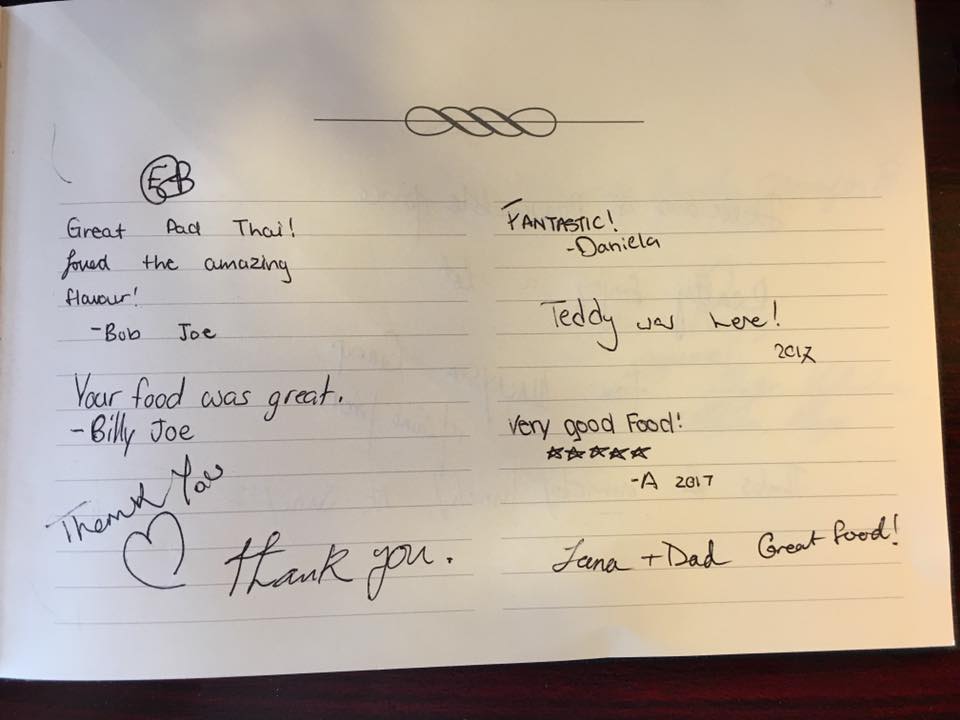 EB
Great Pad Thai!
loved the amazing
flavour!
-Bob Joe
Your food was great.
-Billy Joe
Thank You
thank you.
FANTASTIC!
-Daniela
Teddy was here!
2017
Very good Food!
☆☆☆☆☆
-A 2017
+ Dad Great food!